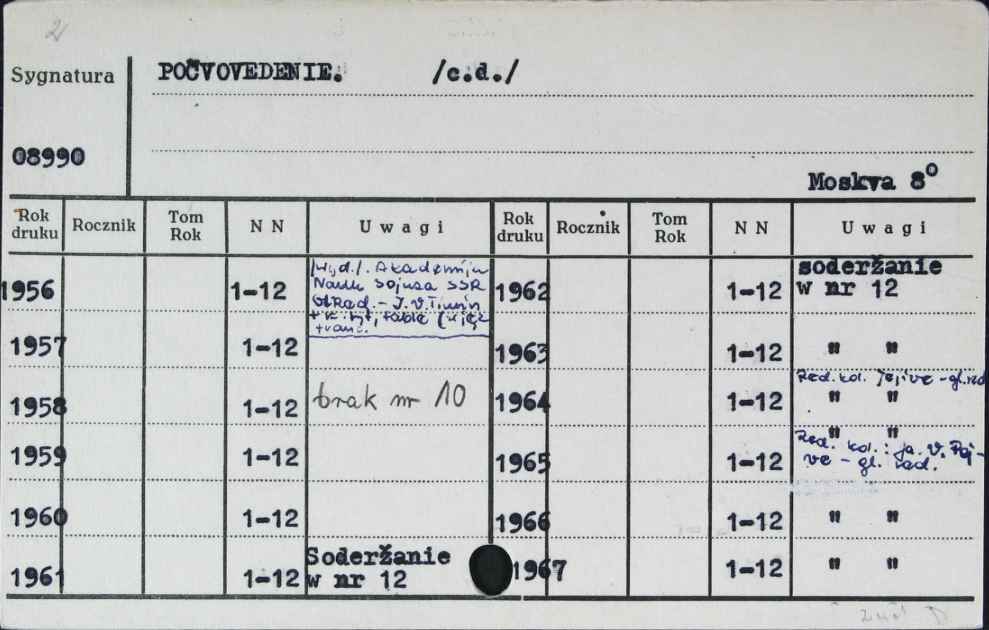 2
Sygnatura
POČVOVEDENIE. /c.d./
08990
Moskva 8⁰
Rok druku Rocznik Tom Rok N N Uwagi Rok druku Rocznik Tom Rok N N Uwagi
1956 1-12 /Wyd./. Akademija
Nauk Sojusa SSR
Red. - I. V. Tiurin
+ k. tyt, table
franc.
1957 1-12
1958 1-12 brak nr 10
1959 1-12
1960 1-12
1961 1-12 Soderžanie
w nr 12
1962 1-12 soderžanie
w nr 12
1963 1-12 " "
Red. kol. - gl. red
1964 1-12 " "
" "
1965 1-12 Red. kol.: Ja. V. Pej-
ve - gl. red.
1966 1-12 " "
1967 1-12 " "